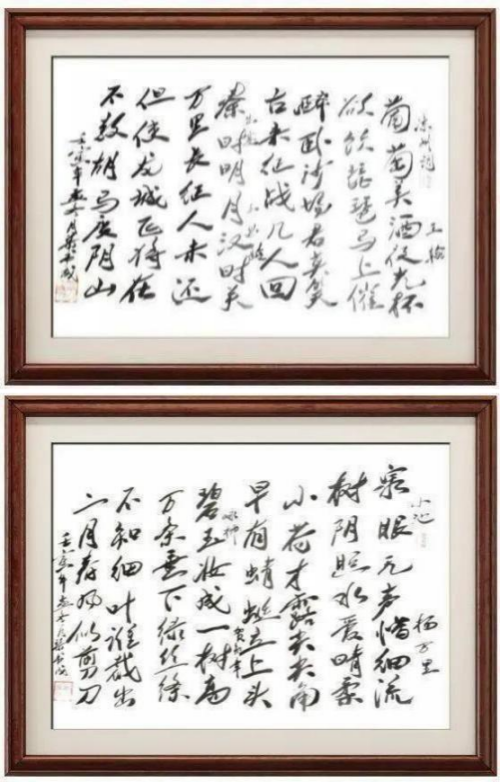 凉州词 王翰
葡萄美酒夜光杯
欲饮琵琶马上催
醉卧沙场君莫笑
古来征战几人回
出塞 王昌龄
秦时明月汉时关
万里长征人未还
但使龙城飞将在
不教胡马度阴山
壬寅年
小池 杨万里
泉眼无声惜细流
树阴照水爱晴柔
小荷才露尖尖角
早有蜻蜓立上头
咏柳 贺知章
碧玉妆成一树高
万条垂下绿丝绦
不知细叶谁裁出
二月春风似剪刀
壬寅年